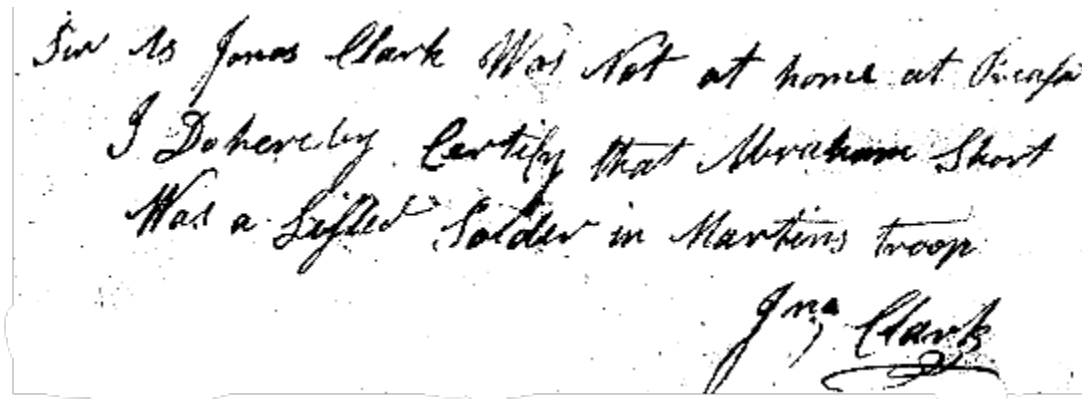 Sir As Jonas Clark Was Not at home at
I Do hereby Certify that Abraham Short
Was a Lifted Solder in Martins troop
Jna Clark